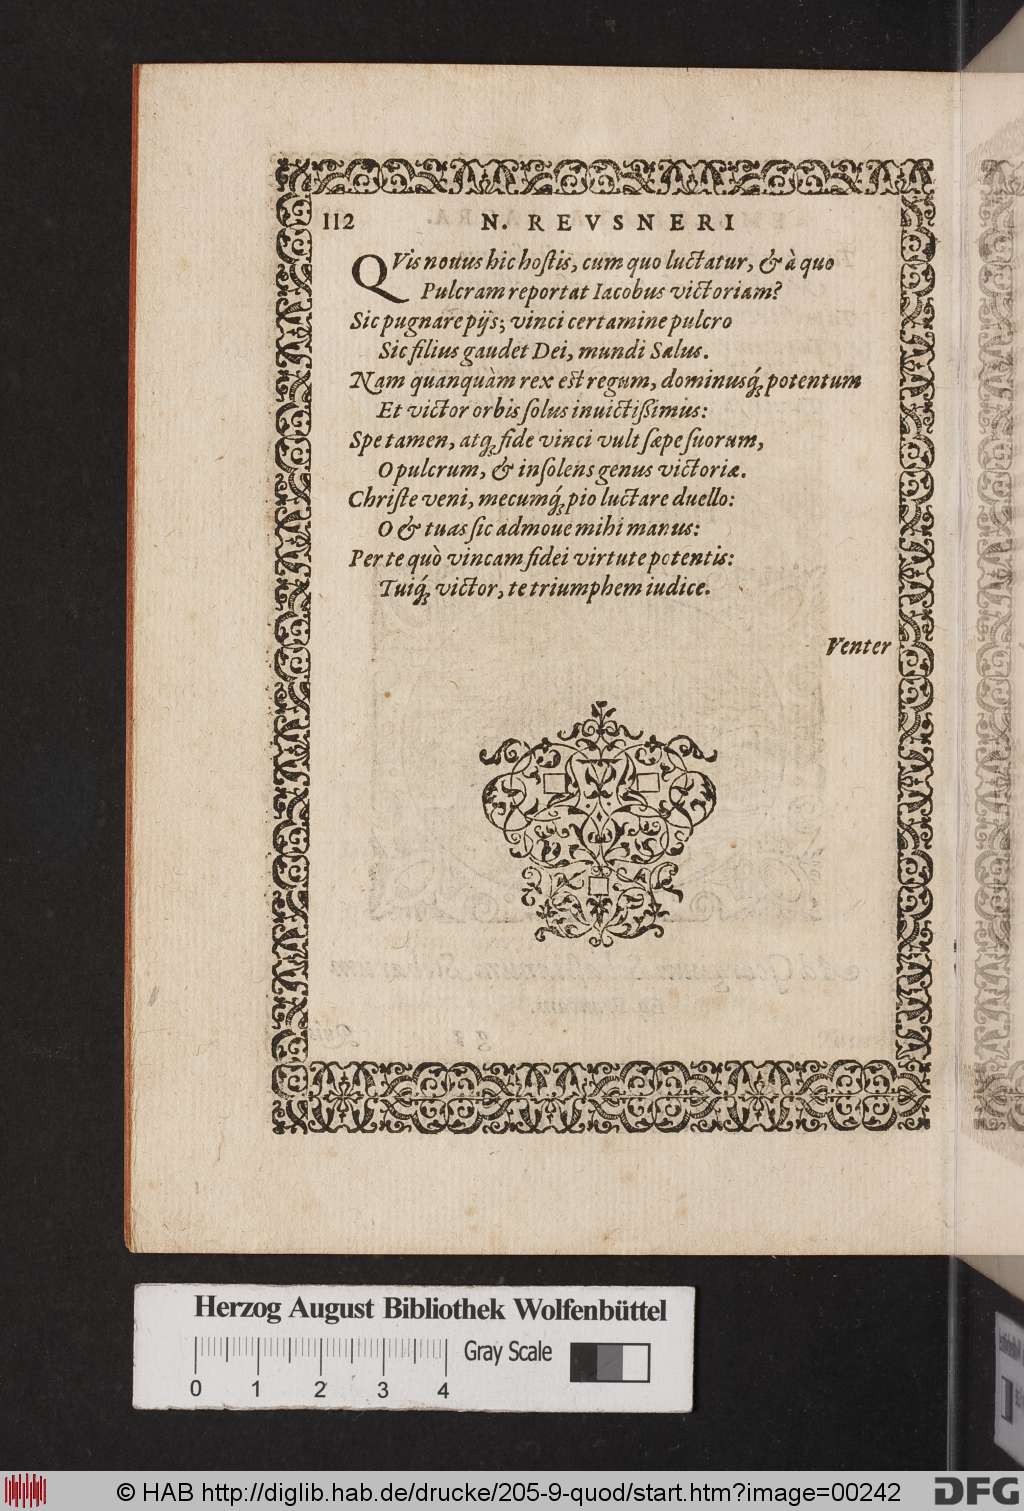 112 N. REVSNERI
QVis nouus hic hostis, cum quo luctatur, & à quo
Pulcram reportat Iacobus victoriam?
Sic pugnare pijs; vinci certamine pulcro
Sic filius gaudet Dei, mundi Salus.
Nam quanquàm rex est regum, dominusq́; potentum
Et victor orbis solus inuictißimus:
Spe tamen, atq; fide vinci vult sæpe suorum,
O pulcrum, & insolens genus victoriæ.
Christe veni, mecumq́; pio luctare duello:
O & tuas sic admoue mihi manus:
Per te quò vincam fidei virtute potentis:
Tuiq́; victor, te triumphem iudice.
Venter
Herzog August Bibliothek Wolfenbüttel
Gray Scale
0 1 2 3 4
© HAB http://diglib.hab.de/drucke/205-9-quod/start.htm?image=00242
DFG